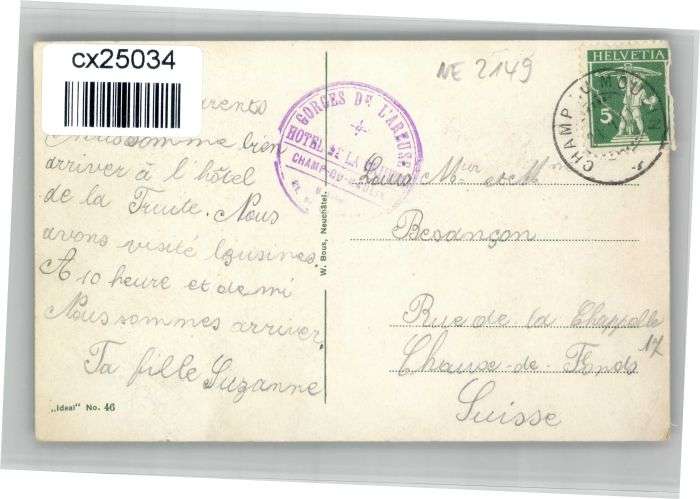 cx25034
NE 2149
HELVETIA
5
CHAMP-DU-MOULIN
GORGES DE L'AREUSE
HOTEL DE LA TRUITE
CHAMP-DU-MOULIN
parents
Nous somme bien
arriver à l'hôtel
de la Truite. Nous
avons visité lousines.
A 10 heure et demi
Nous sommes arriver.
Ta fille Suzanne
„Ideal" No. 46
W. Bous, Neuchâtel.
Mur et Mm
Besançon
Rue de la Chappelle
17
Chaux-de-Fonds
Suisse